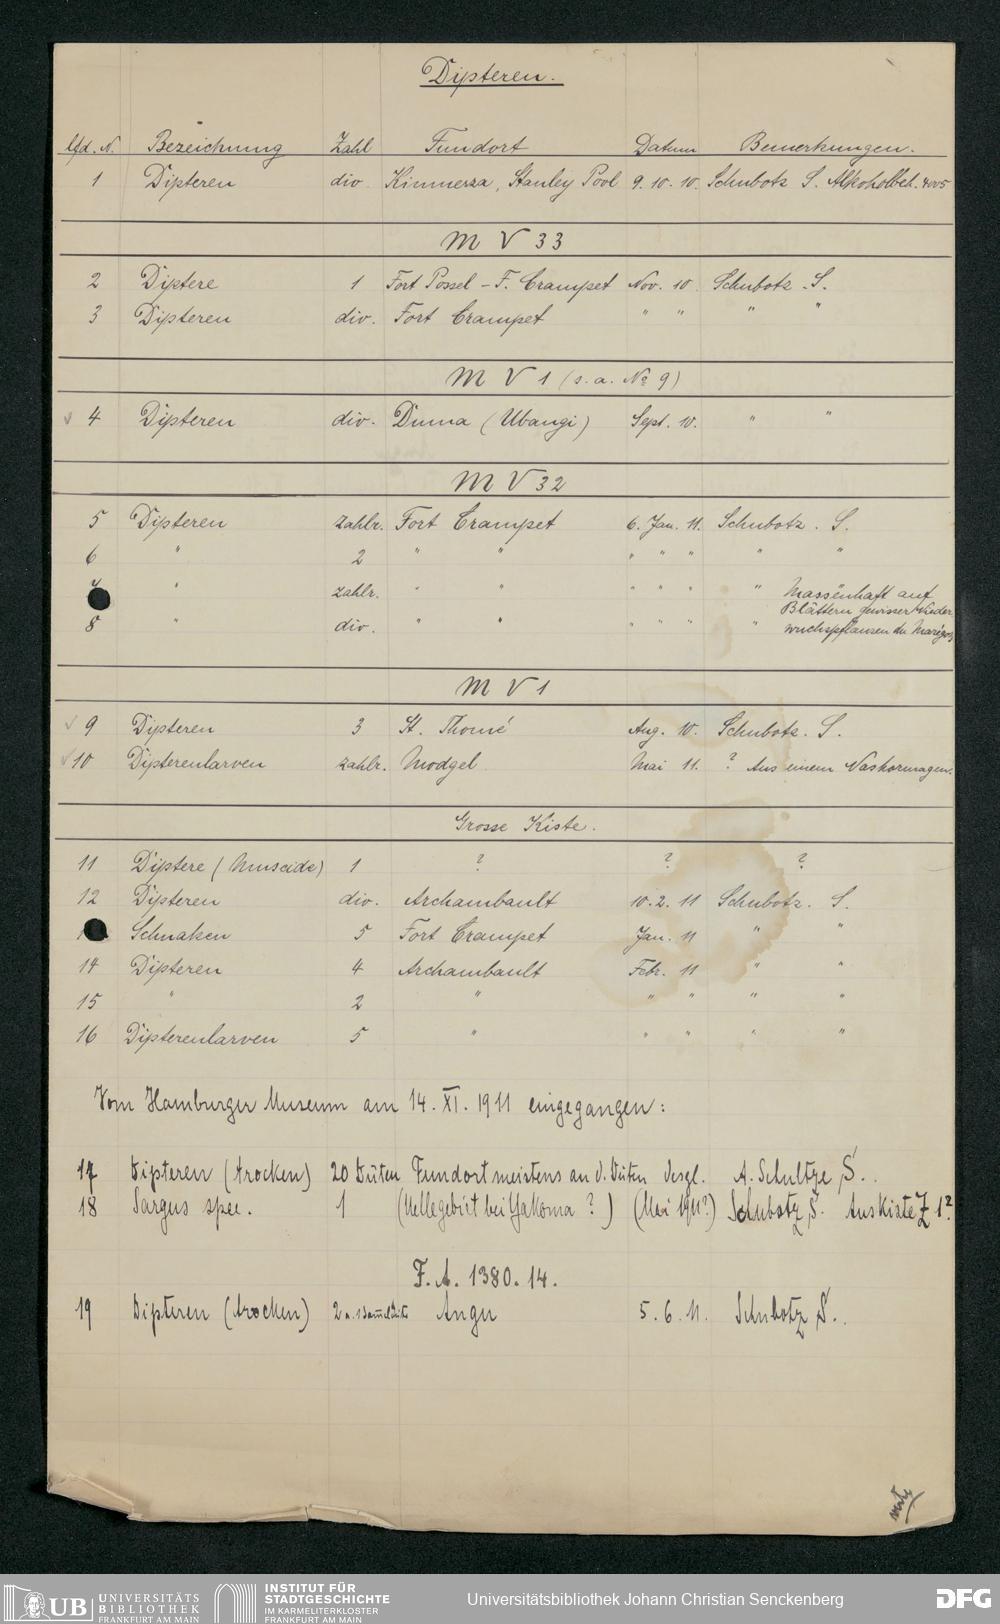 Dipteren.
lfd. N. Bezeichnung Zahl Fundort Datum Bemerkungen.
1 Dipteren div. Kimuesza, Stanley Pool 9. 10. 10. Schubotz S. Alkoholbeh. 4005
M V 33
2 Diptere 1 Fort Possel - F. Crampet Nov. 10. Schubotz. S.
3 Dipteren div. Fort Crampet " " " "
M V 1 (s. a. No 9)
4 Dipteren div. Duma (Ubangi) Sept. 10. " "
M V 32
5 Dipteren zahlr. Fort Crampet 6. Jan. 11. Schubotz. S.
6 " 2 " " " " " " "
7 " zahlr. " " " " " " Massenhaft auf
Blättern gewisser Nieder
8 " div. " " " " " " wuchspflanzen der Marigots
M V 1
9 Dipteren 3 St. Thomé Aug. 10. Schubotz. S.
10 Dipterenlarven zahlr. Modgel Mai 11. ? Aus einem Nashornmagen.
Grosse Kiste.
11 Diptere (Muscide) 1 ? ? ?
12 Dipteren div. Archambault 10. 2. 11 Schubotz. S.
Schnaken 5 Fort Crampet Jan. 11 " "
14 Dipteren 4 Archambault Febr. 11 " "
15 " 2 " " " " "
16 Dipterenlarven 5 " " " " "
Vom Hamburger Museum am 14. XI. 1911 eingegangen:
17 Dipteren (trocken) 20 Düten Fundort meistens an d. Düten desgl. A. Schultze S.
18 Sargus spec. 1 (Uellegebiet bei Yakoma ?) (Mai 1911?) Schubotz S. Aus Kiste Z 1?
F. A. 1380. 14.
19 Dipteren (trocken) 2 Angu 5. 6. 11. Schubotz S.
UB UNIVERSITÄTS BIBLIOTHEK FRANKFURT AM MAIN
INSTITUT FÜR STADTGESCHICHTE IM KARMELITERKLOSTER FRANKFURT AM MAIN
Universitätsbibliothek Johann Christian Senckenberg
DFG